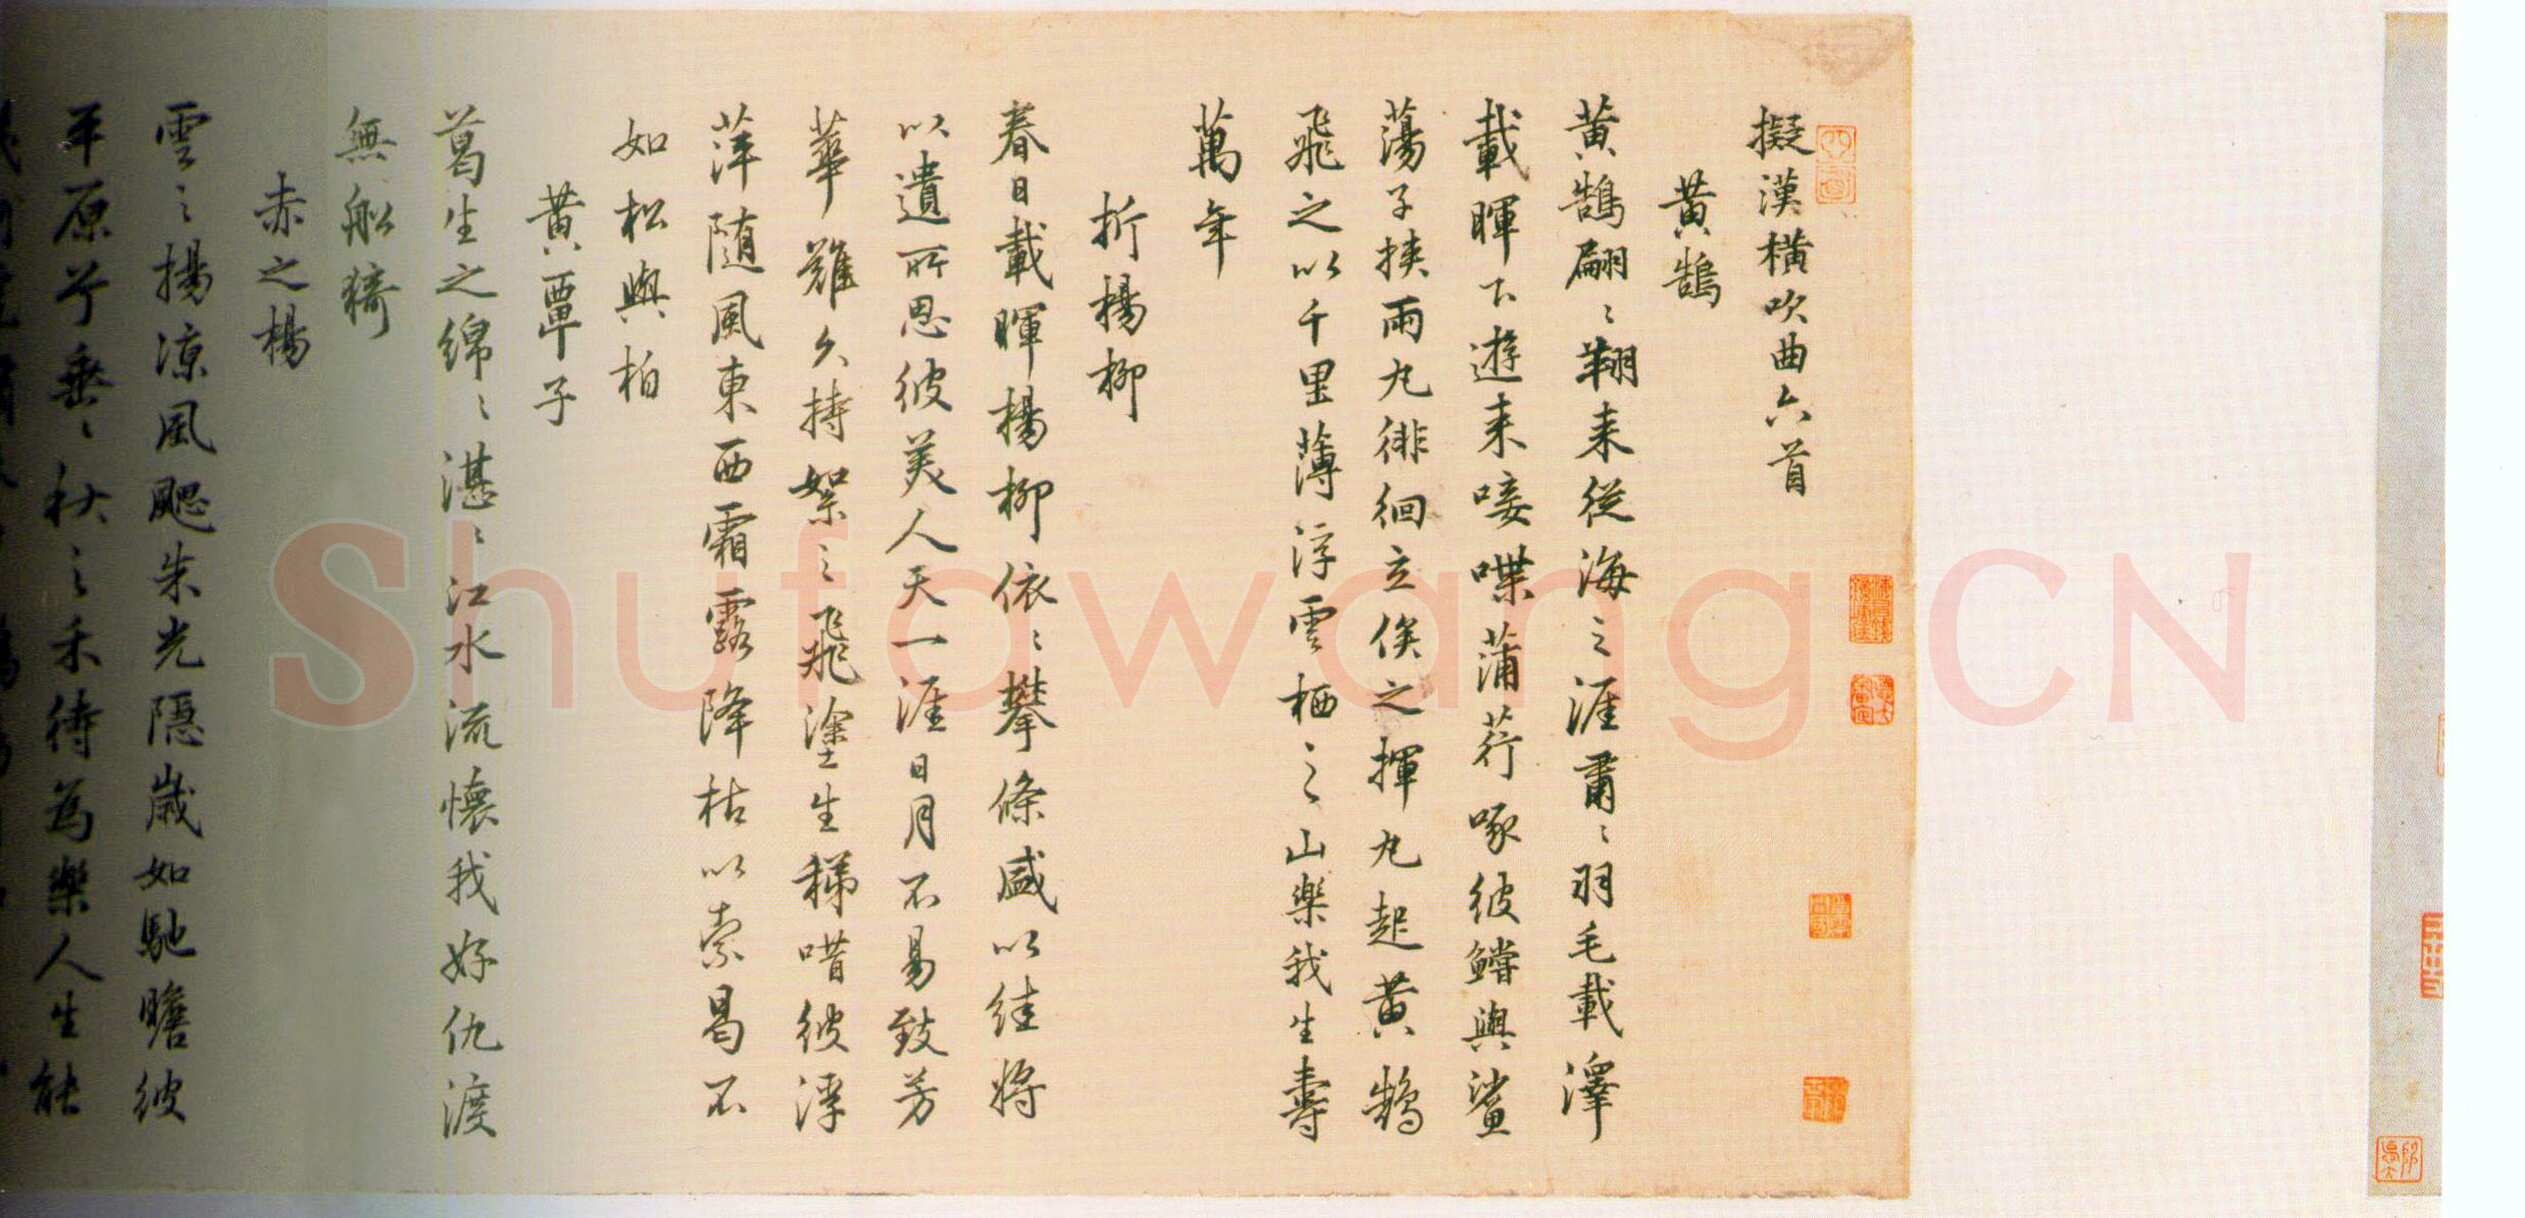 擬漢橫吹曲六首
黃鵠
黃鵠翩〻翔来從海之涯肅〻羽毛載澤
載暉下遊来唼喋蒲荇啄彼鱨與鯊
蕩子挾兩丸徘徊立俟之揮丸起黃鵠
飛之以千里薄浮雲栖之山樂我生壽
萬年
折楊柳
春日載暉楊柳依〻攀條盛以結將
以遺所思彼美人天一涯日月不易致芳
華難久持絮之飛塗生稊唶彼浮
萍隨風東西霜露降枯以索曷不
如松與柏
黃覃子
葛生之綿〻湛〻江水流懷我好仇渡
無船猗
赤之楊
雲之揚涼風颸朱光隱歲如馳瞻彼
平原兮垂〻秋之禾待為樂人生能
Shufawang.CN